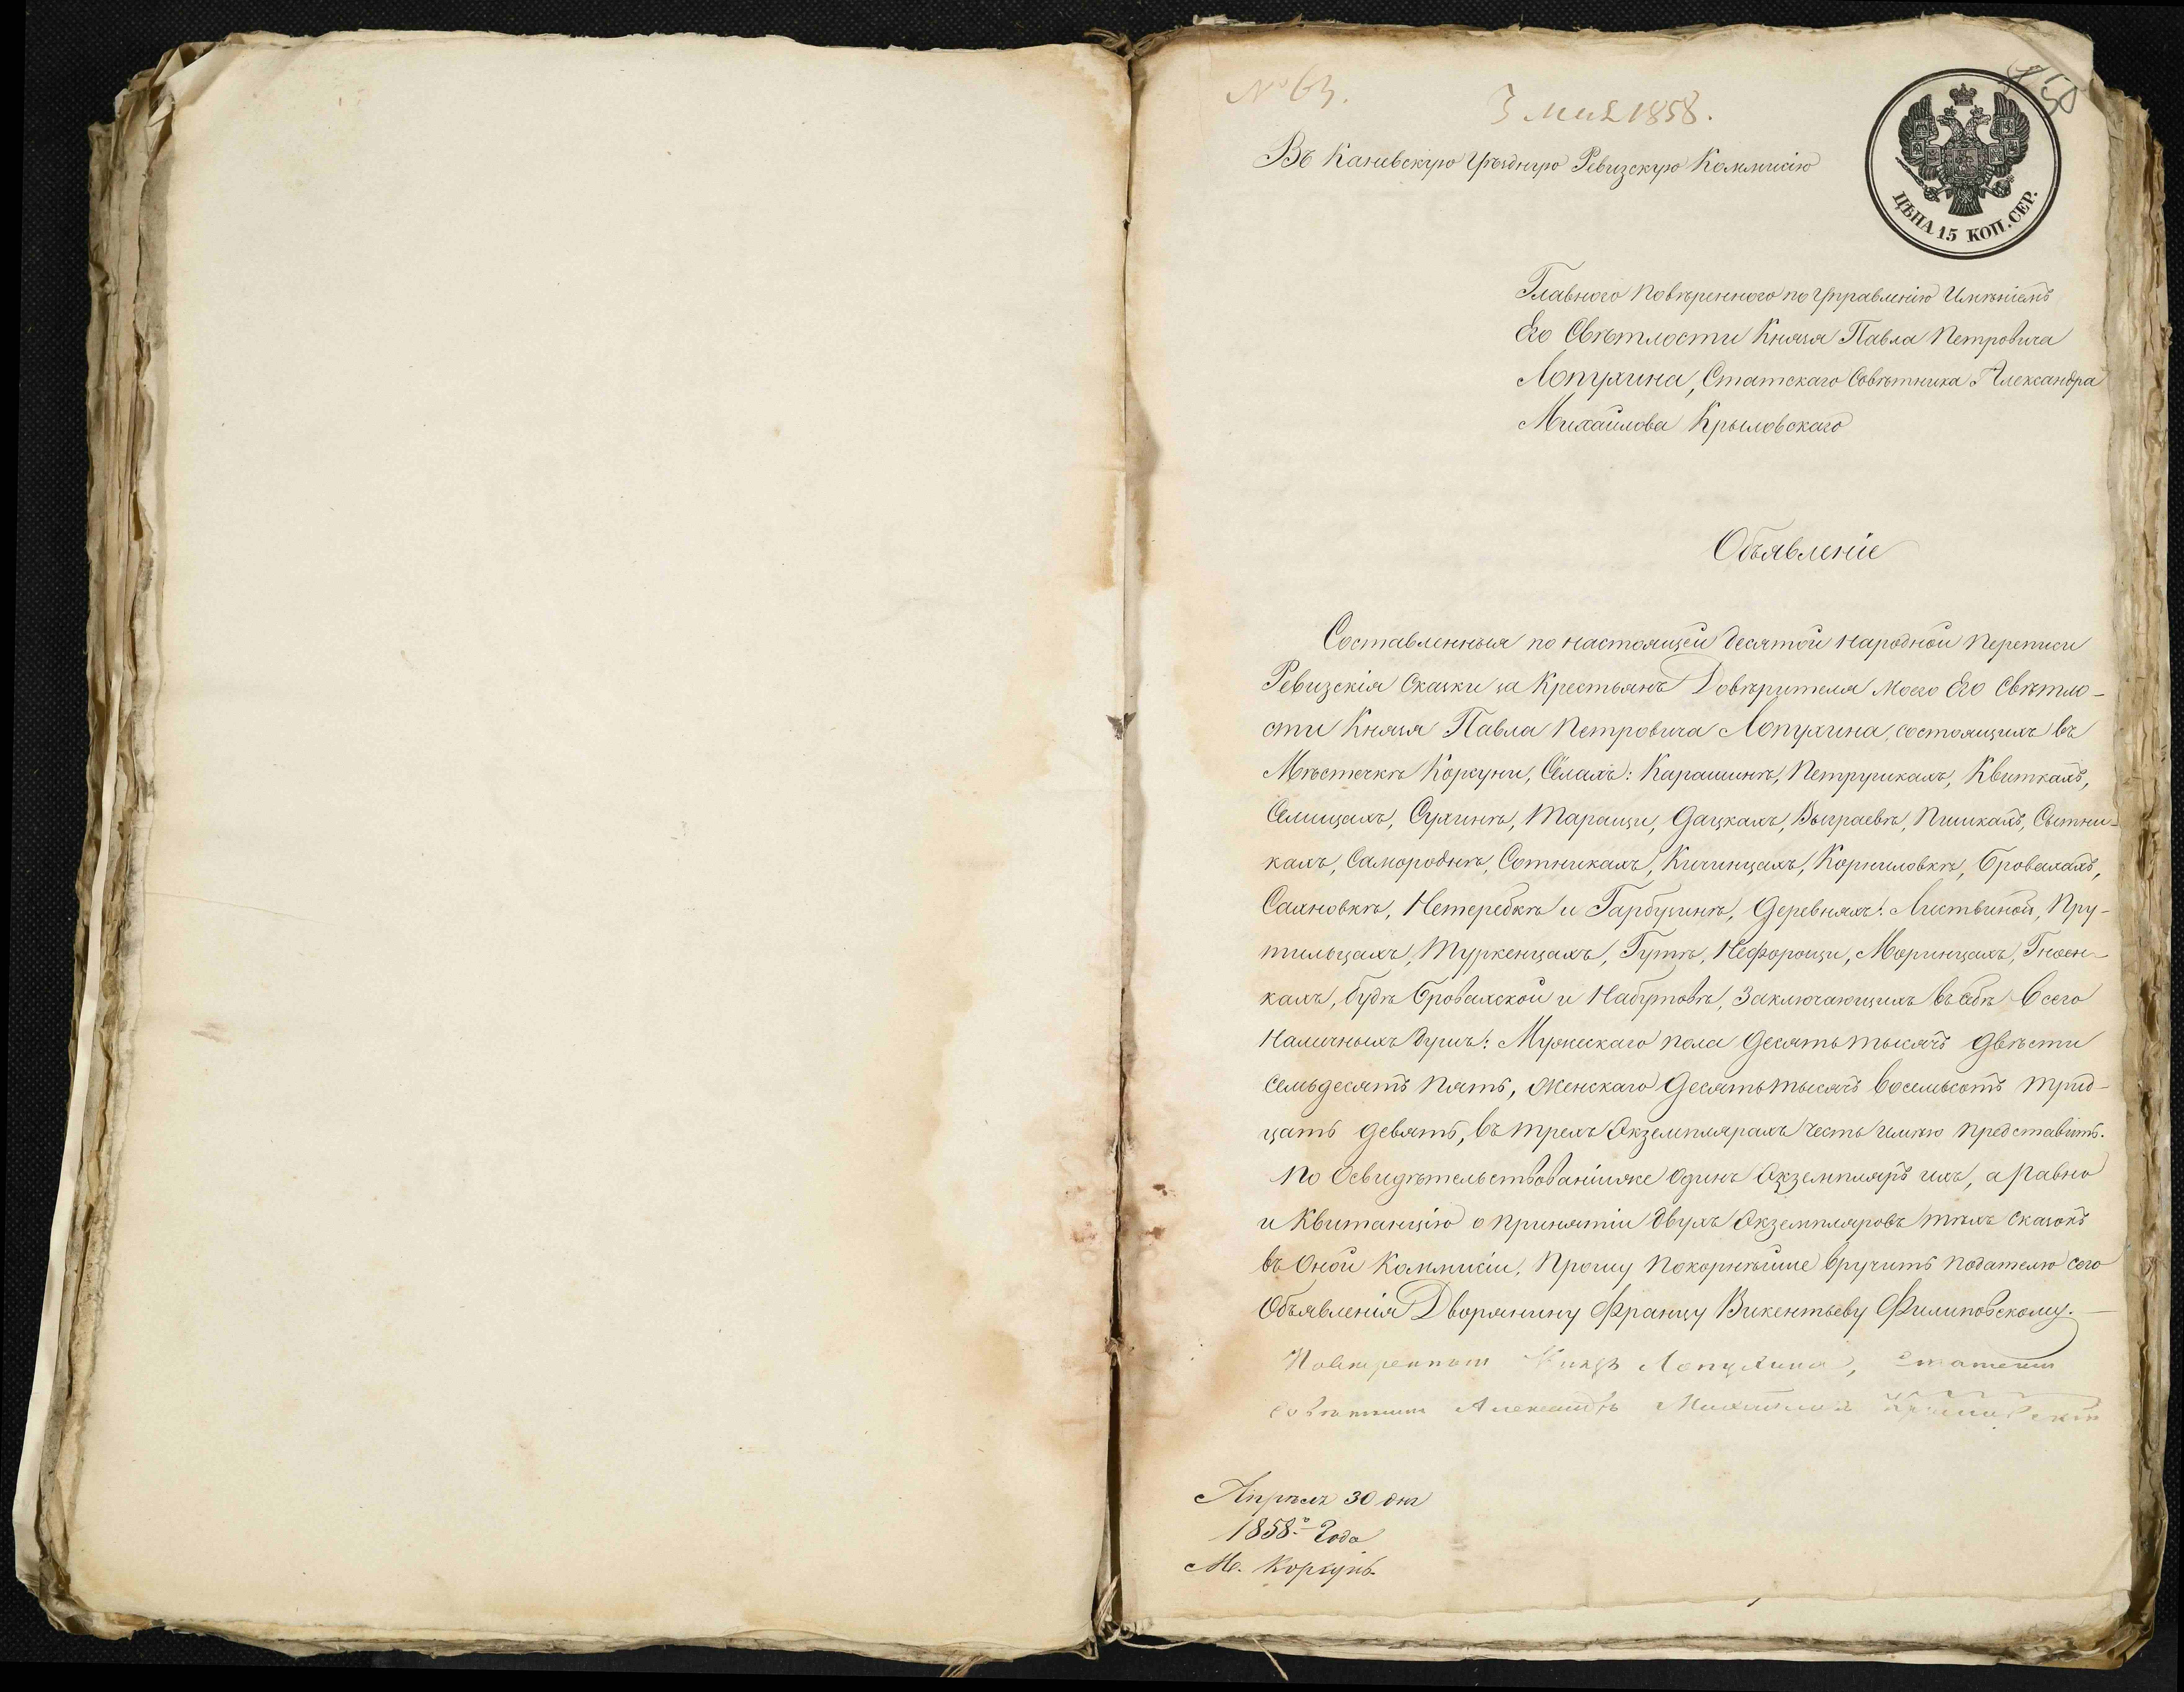 № 63.
3 Мая 1858.
50
ЦѢНА 15 КОП. СЕР.
Въ Каневскую Уѣздную Ревизскую Коммисію
Главного Повѣренного по Управленію Имѣніемъ
Его Свѣтлости Князя Павла Петровича
Лопухина, Статскаго Совѣтника Александра
Михайлова Крыловскаго
Объявленіе
Составленныя по настоящей десятой народной переписи
Ревизскія Сказки за Крестьянъ Довѣрителя моего Его Свѣтло-
сти Князя Павла Петровича Лопухина, состоящихъ въ
Мѣстечкѣ Корсуни, Сёлахъ: Карашинѣ, Петрушкахъ, Квиткахъ,
Селищахъ, Сухинѣ, Таращи, Дацкахъ, Выграевѣ, Пишкахъ, Сытни-
кахъ, Самороднѣ, Сотникахъ, Кичинцахъ, Корниловкѣ, Бровахахъ,
Сахновкѣ, Нетеребкѣ и Гарбузинѣ, Деревняхъ: Листвиной, Пру-
тильцахъ, Туркенцахъ, Гутѣ, Нефорощи, Моринцахъ, Гноен-
кахъ, Будѣ Бровахской и Набутовѣ, Заключающихъ въ себѣ Всего
Наличныхъ душъ: Мужескаго пола Десять тысячъ двѣсти
семьдесятъ пять, Женскаго Десять тысячъ восемьсотъ трид-
цать девять, въ трехъ Экземплярахъ честь имѣю представить.
По Освидѣтельствованіи же Одинъ Экземпляръ ихъ, а равно
и Квитанцію о принятіи двухъ Экземпляровъ тѣхъ сказокъ
въ Оной Коммисіи, Прошу Покорнѣйше вручить подателю сего
Объявленія Дворянину Францу Викентьеву Филиповскому.
Повѣренный Князя Лопухина, Статскій
Совѣтникъ Александръ Михайловъ Крыловскій
Апрѣля 30 дня
1858го Года
М. Корсунь